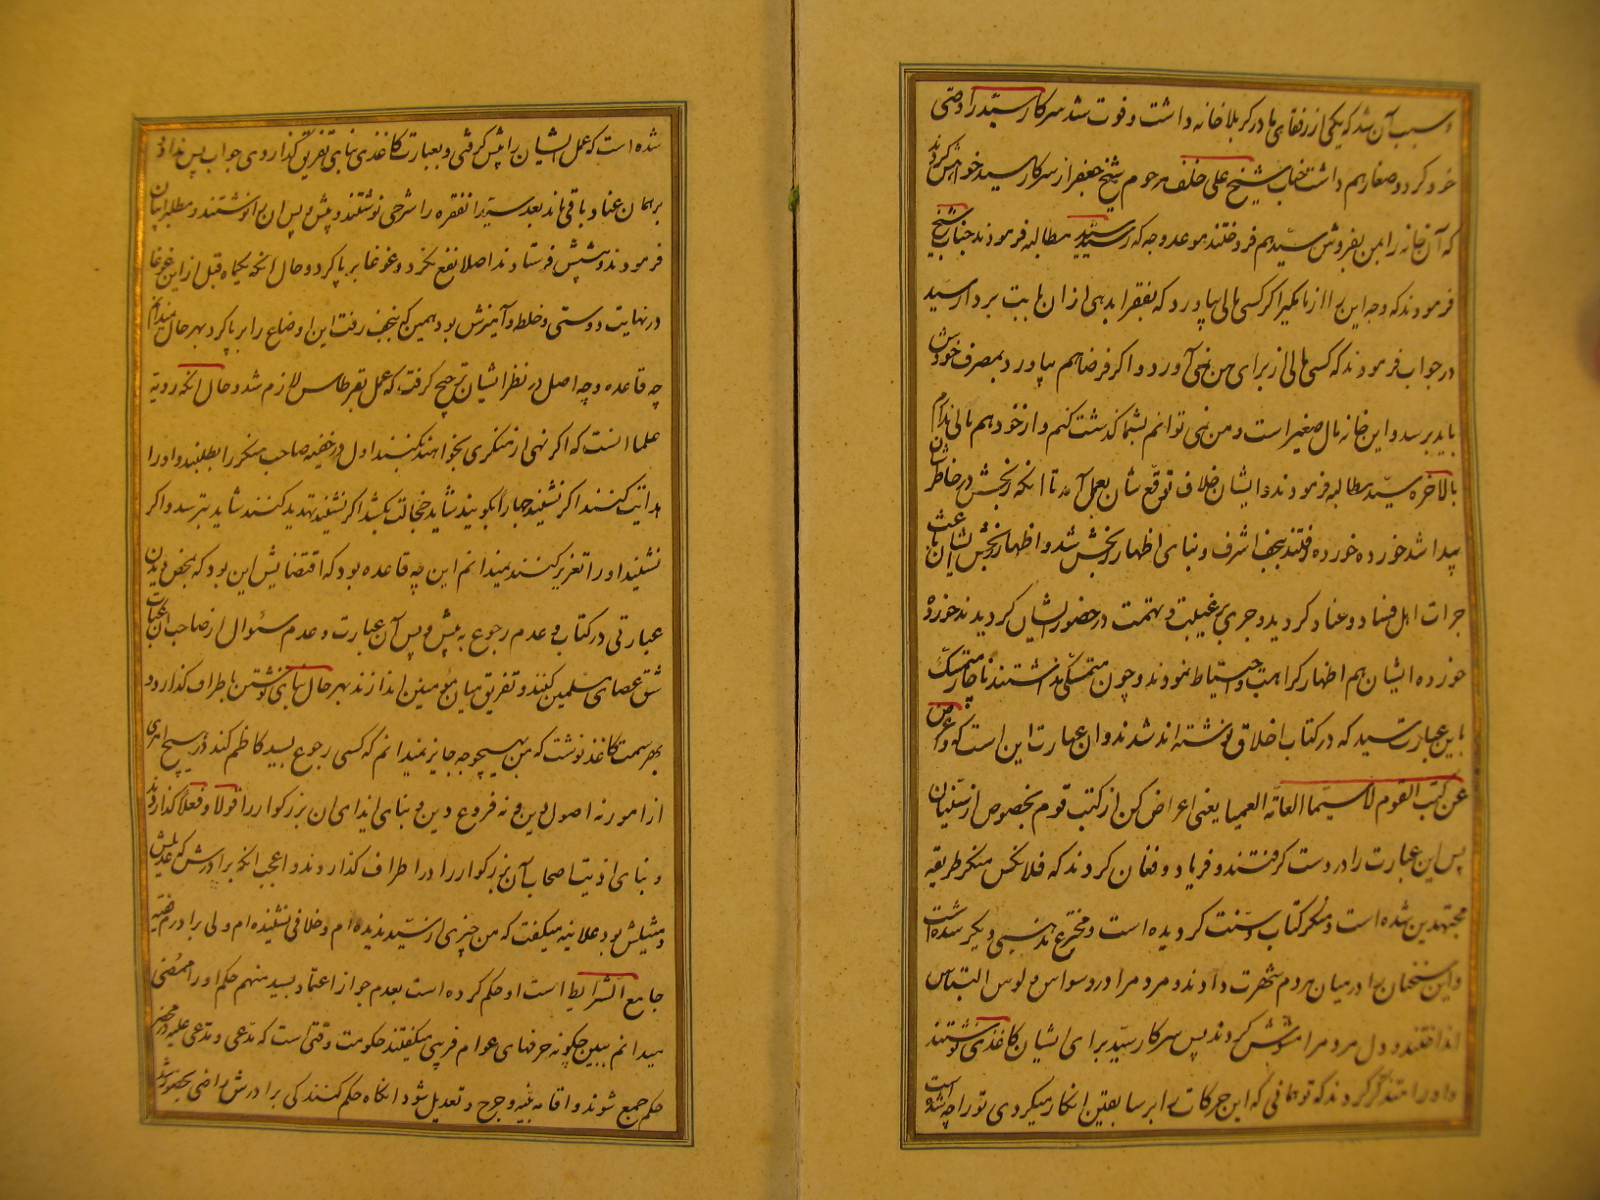 و سبب آن شد که یکی از رفقای ما در کربلا خانه داشت و فوت شد سرکار سیّد را وصی
خود کرد و صغار هم داشت جناب شیخ علی خلف مرحوم شیخ جعفر از سرکار سید خواهش کردند
که آن خانه را بمن بفروش سیّد هم فروختند موعد وجه که رسید سیّد مطالبه فرمودند جناب شیخ
فرمودند که وجه این را از ما مگیر اگر کسی مالی بیاورد که بفقرا بدهی از ان بابت بردار سید
در جواب فرمودند که کسی مالی از برای من نمی آورد و اگر فرضا هم بیاورد بمصرف خودش
باید برسد و این خانه مال صغیر است و من نمی توانم بشما گذشت کنم و از خود هم مالی ندارم
بالاخره سیّد مطالبه فرمودند و ایشان خلاف توقّع شان بعمل آمد تا انکه رنجش در خاطرشان
پیدا شد خورده خورده رفتند بنجف اشرف و بنای اظهار رنجش شد و اظهار رنجش ایشان باعث
جرات اهل فساد و عناد گردید و جری بر غیبت و تهمت در حضور ایشان گردیدند خورده
خورده ایشان هم اظهار کراهت و احتیاط نمودند و چون متمسّکی نداشتند ناچار متمسّک
باین عبارت سید که در کتاب اخلاق نوشته اند شدند و ان عبارت این است که و اعرض
عن کتب القوم لاسیّما العامّة العمیا یعنی اعراض کن از کتب قوم بخصوص از سنّیان
پس این عبارت را در دست گرفتند و فریاد و فغان کردند که فلانکس منکر طریقه
مجتهدین شده است و منکر کتاب و سنت گردیده است و مخترع مذهبی دیگر شده است
و این سخنان را در میان مردم شهرت دادند و مردم را در وسواس و لوس التباس
انداختند و دل مردم را مشوش کردند پس سرکار سیّد برای ایشان کاغذی نوشتند
و او را متذکّر کردند که تو همانی که این حرکات را بر سابقین انکار میکردی تو را چه شده است
شده است که عمل ایشان را پیش گرفتی و بعبارت کاغذی بنای تفریق گذاردی جواب پس نداد و
بر همان عناد باقی ماند بعد سیّد انفقره را شرحی نوشتند و پیش و پس ان را نوشتند و مطلب را بیان
فرمودند و پیشش فرستادند اصلا نفع نکرد و غوغا بر پا کرد و حال انکه یکماه قبل از این غوغا
در نهایت دوستی و خلط و آمیزش بود همین که بنجف رفت این اوضاع را بر پا کرد بهر حال نمیدانم
چه قاعده و چه اصل در نظر ایشان ترجیح گرفت که عمل بقرطاس لازم شد و حال انکه رویّه
علما انست که اگر نهی از منکری بخواهند بکنند اول در خفیه صاحب منکر را بطلبند و او را
هدایت کنند اگر نشنید جهارا بگویند شاید خجالت بکشد اگر نشنید تهدید کنند شاید بترسد و اگر
نشنید او را تعزیر کنند نمیدانم این چه قاعده بود که اقتضایش این بود که بمحض دیدن
عبارتی در کتابی و عدم رجوع به پیش و پس آن عبارت و عدم سئوال از صاحب عبارت
شق عصای مسلمین کنند و تفریق میان مؤمنین اندازند بهر حال بنای نوشتن باطراف گذارد و
بهر سمت کاغذ نوشت که من بهیچوجه جایز نمیدانم که کسی رجوع بسید کاظم کند در هیچ امری
از امور نه اصول دین و نه فروع دین و بنای ایذای ان بزرگوار را قولا و فعلا گذاردند
و بنای اذیت اصحاب آن بزرگوار را در اطراف گذاردند و اعجب انکه برادرش که عدیلش
و مثیلش بود علانیه میگفت که من چیزی از سیّد ندیده ام و خلافی نشنیده ام ولی برادرم فقیه
جامع الشرایط است او حکم کرده است بعدم جواز اعتماد بسید منهم حکم او را ممضی
میدانم ببین چگونه حرفهای عوام فریبی میگفتند حکومت وقتی است که مدّعی و مدّعی علیه در محضر
حکم جمع شوند و اقامه بیّنه و جرح و تعدیل شود انگاه حکم کنند کی برادرش راضی بحضور شد